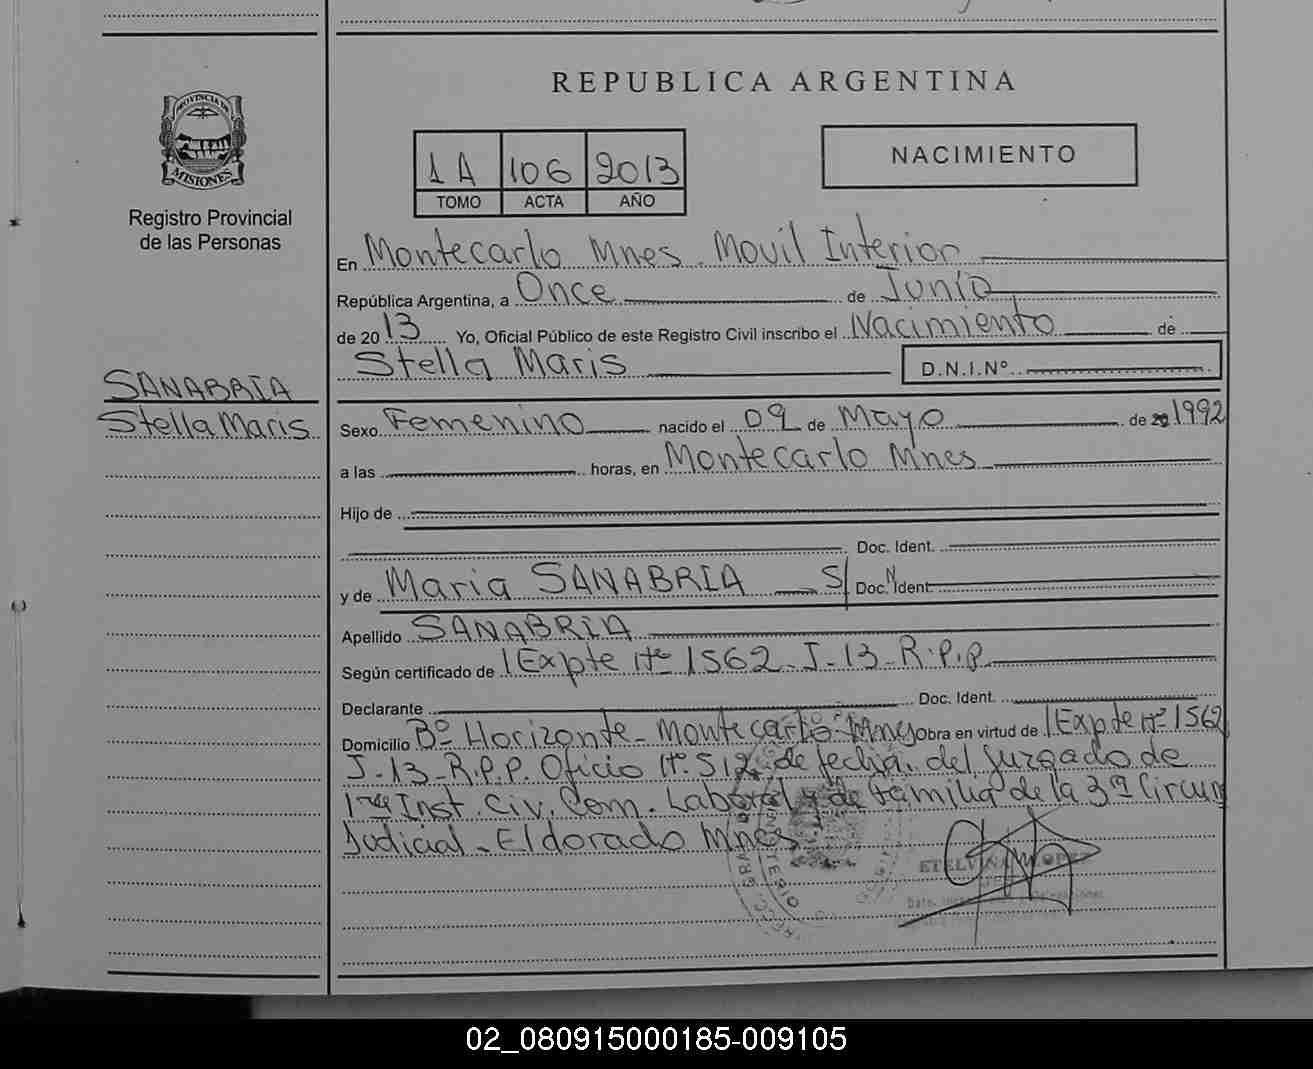 REPUBLICA ARGENTINA
PROVINCIA DE
MISIONES
Registro Provincial
de las Personas
1A 106 2013
TOMO ACTA AÑO
NACIMIENTO
En Montecarlo Mnes. Movil Interior
República Argentina, a Once de Junio
de 2013 Yo, Oficial Público de este Registro Civil inscribo el Nacimiento de
Stella Maris D.N.I.Nº
SANABRIA
Stella Maris
Sexo Femenino nacido el 09 de Mayo de 20 1992
a las horas, en Montecarlo Mnes
Hijo de
Doc. Ident.
y de Maria SANABRIA S/N Doc. Ident.
Apellido SANABRIA
Según certificado de Expte Nº 1562-J-13-R.P.P
Declarante Doc. Ident.
Domicilio Bº Horizonte - Montecarlo - Mnes Obra en virtud de Expte Nº 1562
J-13-R.P.P. Oficio Nº 512 de fecha. del Juzgado de
1ra Inst. Civ. Com. Laboral y de Familia de la 3ª Circun
Judicial - Eldorado Mnes.
LOPEZ
02_080915000185-009105